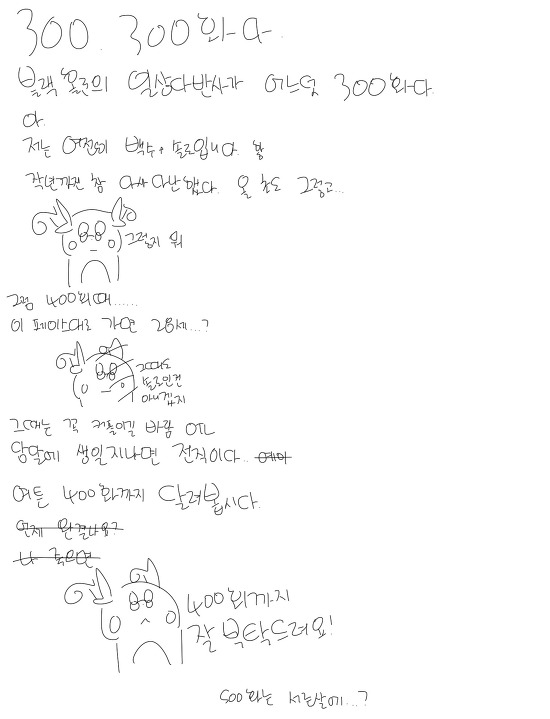 300. 300화다.
블랙홀로의 일상다반사가 어느덧 300화다
아.
저는 여전히 백수+솔로입니다. 핳
작년까진 참 다사다난했다. 올 초도 그렇고...
그렇지 뭐
그럼 400회때......
이 페이스대로 가면 28세...?
그때도
솔로인건
아니겠지
그때는 꼭 커플이길 바람
담달에 생일지나면 전직이다.. 예아
여튼 400화까지 달려봅시다.
언제 완결나요?
나 죽으면
400회까지
잘 부탁드려요!
500화는 서른살에...?